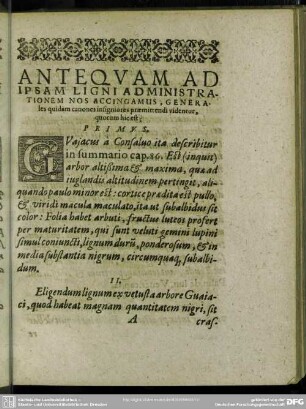 ANTEQVAM AD
IPSAM LIGNI ADMINISTRA-
TIONEM NOS ACCINGAMUS, GENERA-
les quidam canones insigniores præmittendi videntur,
quorum hic est:
PRIMVS.
GVajacus à Consaluo ita describitur
in summario cap. 86. Est (inquit)
arbor altißima & maxima, quæ ad
iuglandis altitudinem pertingit, ali-
quando paulo minor est: cortice prædita est pullo,
& viridi macula maculato, ita ut subalbidus sit
color: Folia habet arbuti, fructus luteos profert
per maturitatem, qui sunt veluti gemini lupini
simul coniuncti, lignum durū, ponderosum, & in
media substantia nigrum, circumquaq, subalbi-
dum.
II.
Eligendum lignum ex vetusta arbore Guaia-
ci, quod habeat magnam quantitatem nigri, sit
A cras-